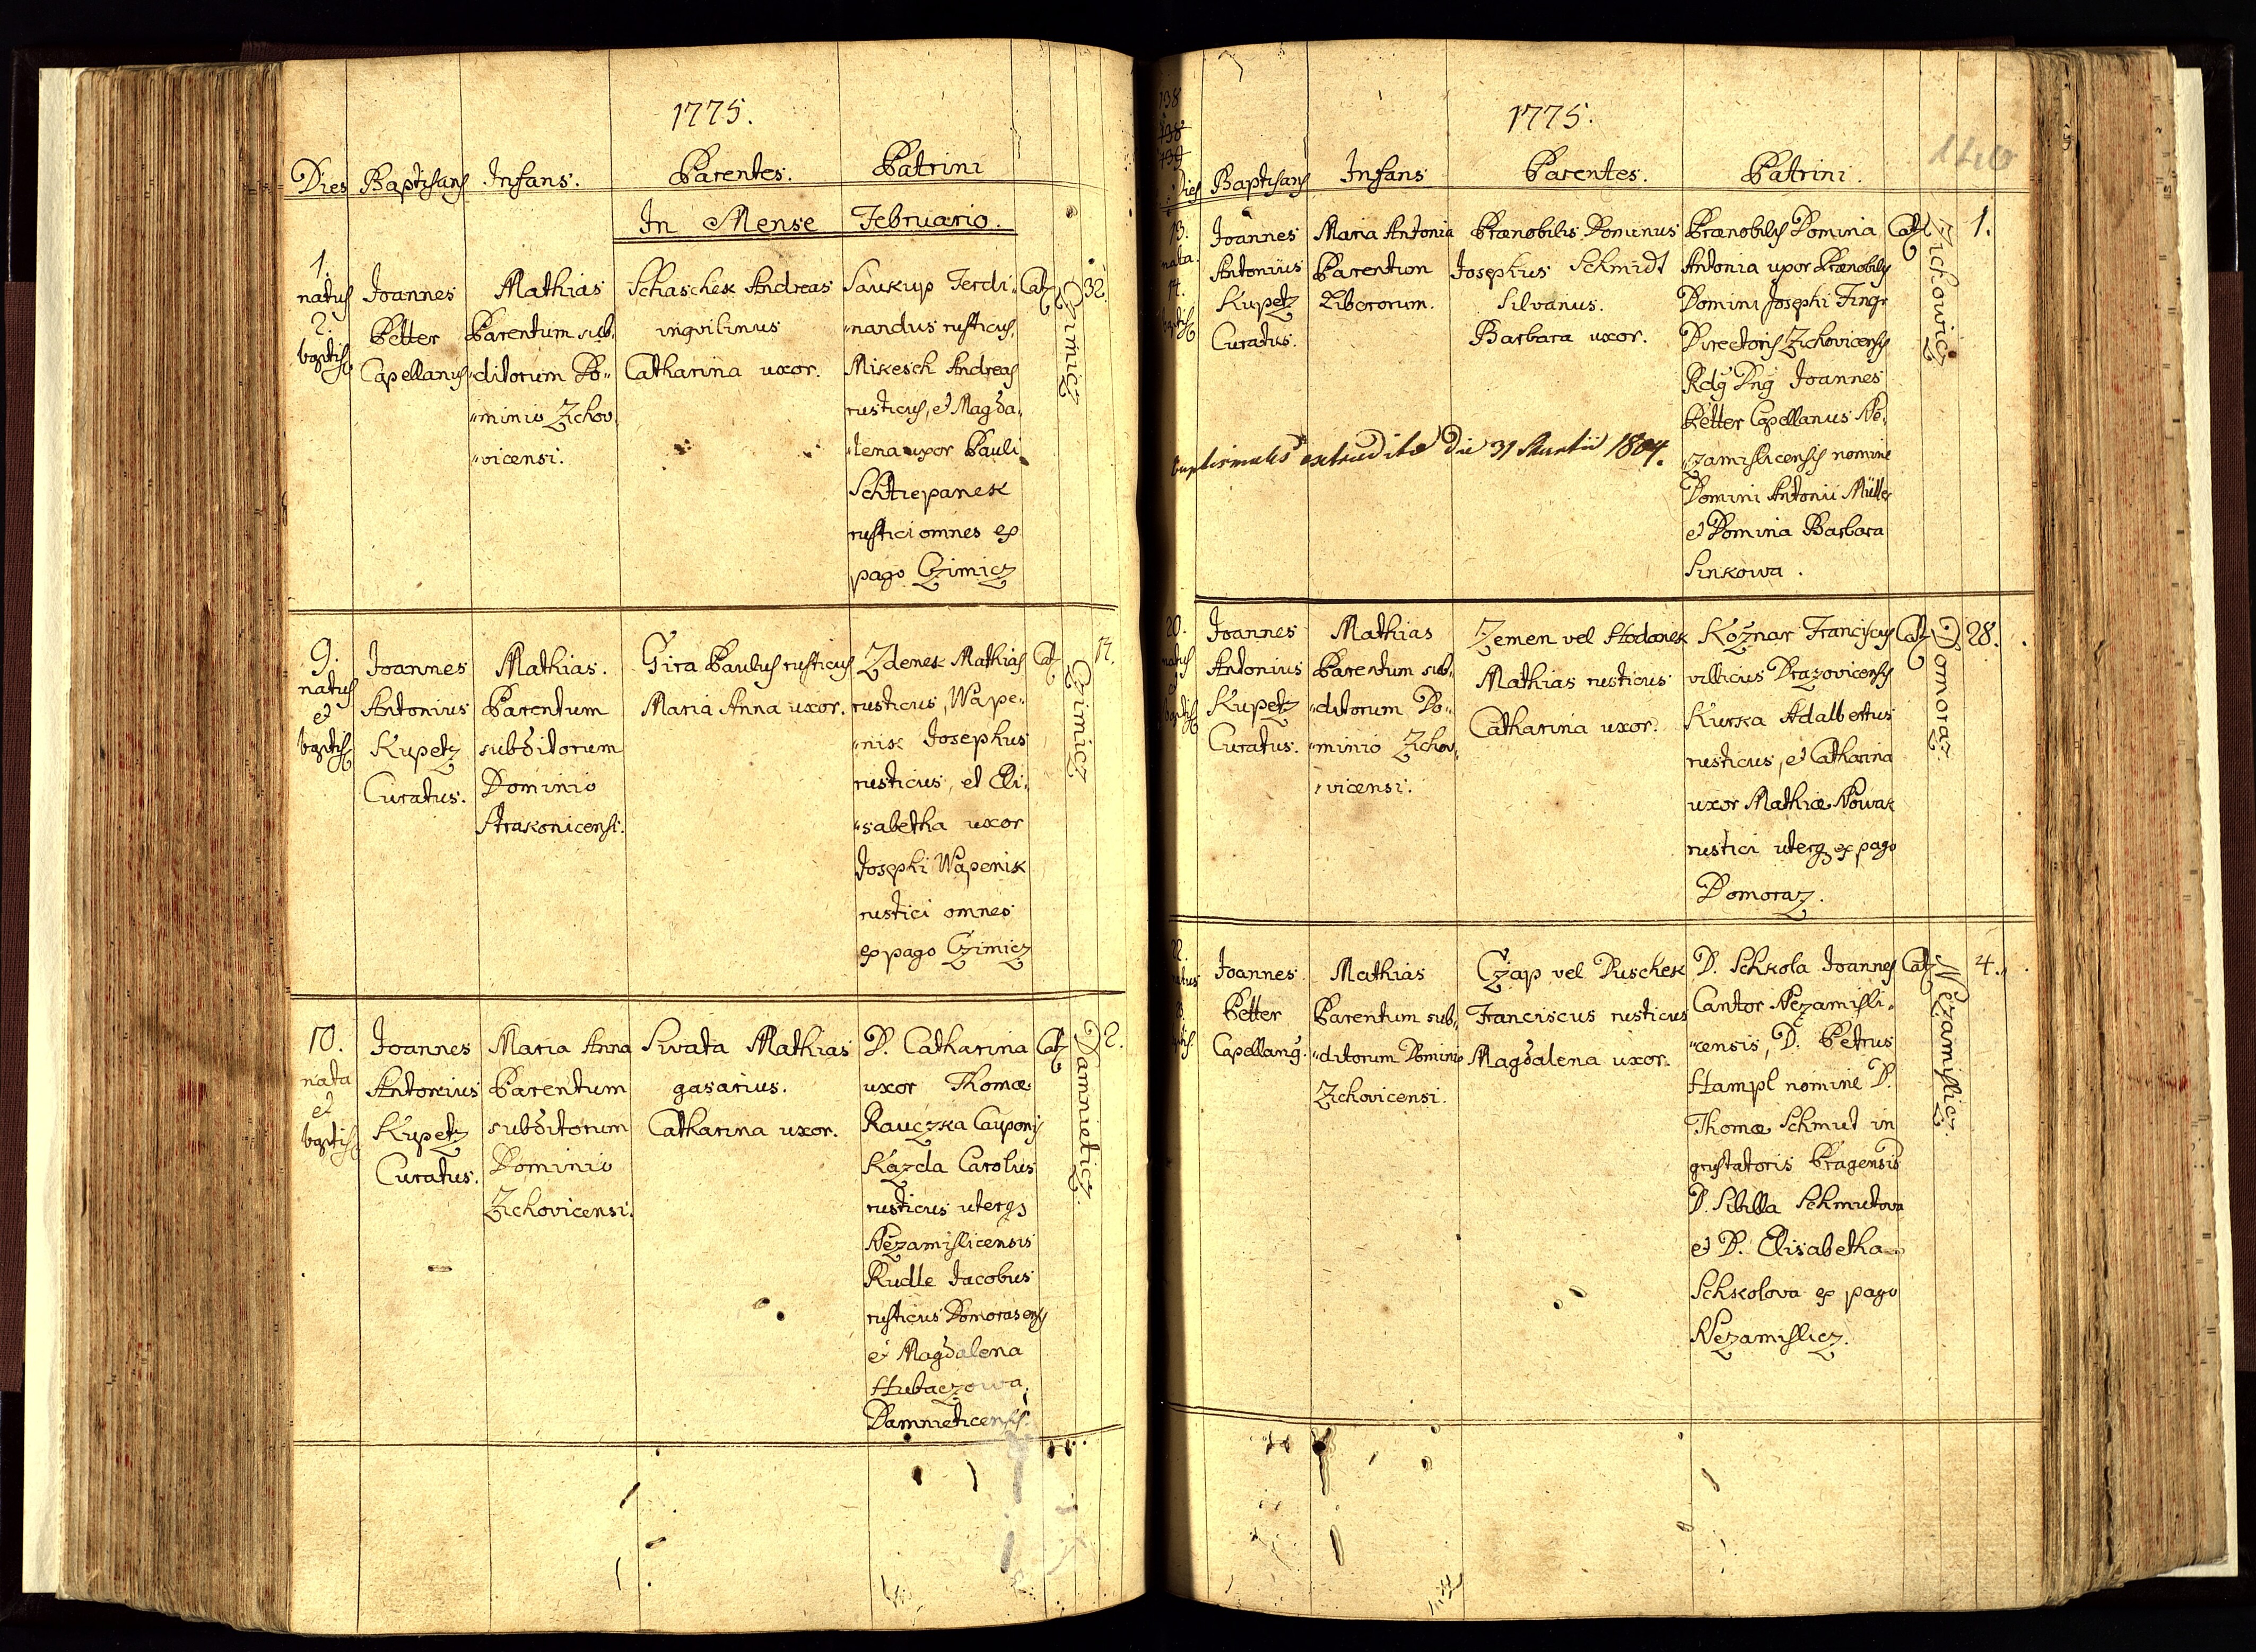 1775.
Dies Baptisans Infans. Parentes. Patrini
In Mense Februario.
1.
natus
2.
baptis
Joannes
Petter
Capellanus
Mathias
Parentum sub„
„ditorum Do„
„minio Zicho„
„vicensi.
Schaschek Andreas
inqvilinus
Catharina uxor.
Saukup Ferdi„
„nandus rusticus,
Mikesch Andreas
rusticus, et Magda„
„lena uxor Pauli
Schtiepanek
rustici omnes ex
pago Czimicz
Cat
Czimicz
32.
9.
natus
et
baptis
Joannes
Antonius
Kupetz
Curatus.
Mathias.
Parentum
subditorum
Dominio
Strakonicensi.
Gira Paulus rusticus
Maria Anna uxor.
Zdenek Mathias
rusticus, Wape„
„nik Josephus
rusticus, et Eli„
„sabetha uxor
Josephi Wapenik
rustici omnes
ex pago Czimicz
Cat
Czimicz
10.
nata
et
baptis
Joannes
Antonius
Kupetz
Curatus.
Maria Anna
Parentum
subditorum
Dominio
Zichovicensi.
Swata Mathias
gasarius.
Catharina uxor.
D. Catharina
uxor Thomæ
Rauczka Cauponis
Kazda Carolus
rusticus uterq
Nezamislicensis
Rudle Jacobus
rusticus Domorasensis
et Magdalena
Hubaczowa
Damnieticensis.
Cat
Damnieticz.
2.
138
1775.
Dies Baptisans Infans Parentes. Patrini.
13.
nata
14.
baptis
Joannes
Antonius
Kupetz
Curatus.
Maria Antonia
Parentum
Liberorum.
Prænobilis Dominus
Josephus Schmidt
Silvanus.
Barbara uxor.
Prænobilis Domina
Antonia uxor Prænobilis
Domini Josephi Fingr
Directoris Zichovicensis
Rdg Dng Joannes
Petter Capellanus Ne„
zamislicensis nomine
Domini Antonii Müller
et Domina Barbara
Sinkowa.
Cat
Zichowicz
1.
baptismales extraditæ die 31 Martii 1804.
20.
natus
et
baptis
Joannes
Antonius
Kupetz
Curatus.
Mathias
Parentum sub„
„ditorum Do„
„minio Zicho„
„vicensi.
Zemen vel Hodanek
Mathias rusticus
Catharina uxor.
Kožnar Franciscus
villicus Drazovicensis
Kurka Adalbertus
rusticus, et Catharina
uxor Mathiæ Nowak
rustici uterq ex pago
Domoraz.
Cat
Domoraz.
28.
22.
natus
baptis.
Joannes
Petter
Capellang.
Mathias
Parentum sub„
„ditorum Dominio
Zichovicensi.
Czap vel Duschek
Franciscus rusticus
Magdalena uxor.
D. Schkola Joannes
Cantor Nezamisli„
„censis, D. Petrus
Hampl nomine D.
Thomæ Schmut in
grustatoris Pragensis
D. Sibilla Schmutova
et D. Elisabetha
Schkolova ex pago
Nezamislicz.
Cat
Nezamislicz.
4.